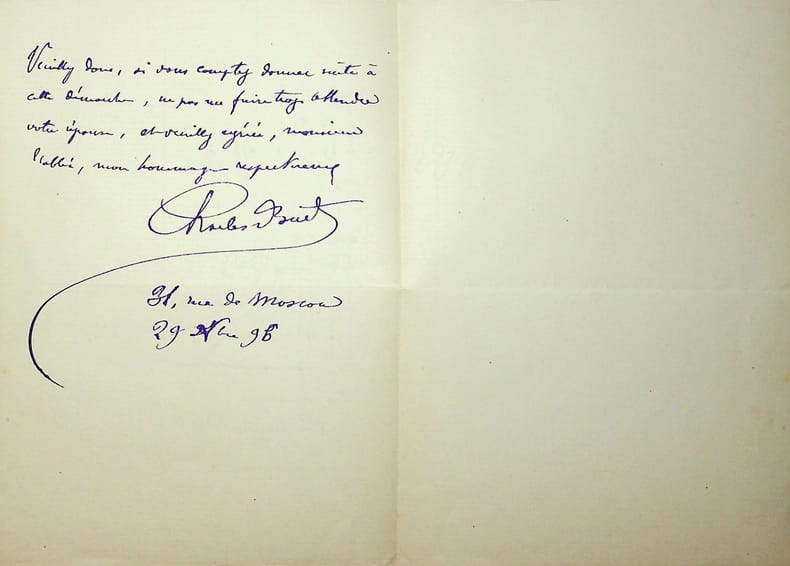 Veuillez donc, si vous comptez donner suite à
cette démarche, ne pas me faire trop attendre
votre réponse, et veuillez agréer, monsieur
l'abbé, mon hommage respectueux
Charles Buet
31, rue de Moscou
29 96